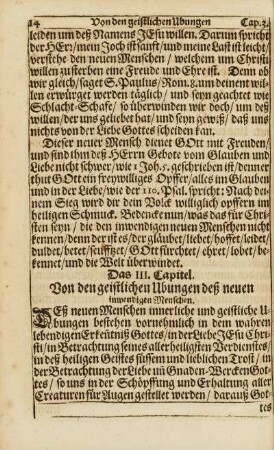 14 Von den geistlichen Ubungen Cap. 3.
leiden um deß Namens JEsu willen. Darum spricht
der HErr/ mein Joch ist sanft/ und meine Last ist leicht/
verstehe den neuen Menschen / welchem um Christi
willen zu sterben eine Freude und Ehre ist. Denn ob
wir gleich/ saget S. Paulus/ Rom. 8. um deinent wil-
len erwürget werden täglich/ und seyn geachtet wie
Schlacht-Schafe/ so überwinden wir doch/ um deß
willen/ der uns geliebet hat/ und seyn gewiß/ daß uns
nichts von der Liebe Gottes scheiden kan.
Dieser neuer Mensch dienet GOtt mit Freuden/
und sind ihm deß HErrn Gebote vom Glauben und
Liebe nicht schwer/ wie 1 Joh. 5. geschrieben ist/ denn er
thut GOtt ein freywilliges Opffer/ alles im Glauben
und in der Liebe/ wie der 110. Psal. spricht: Nach dei-
nem Sieg wird dir dein Volck williglich opffern im
heiligen Schmuck. Bedencke nun/ was das für Chri-
sten seyn / die den inwendigen neuen Menschen nicht
kennen/ denn der ist es/ der gläubet/ liebet/ hoffet/ leidet/
duldet/ betet/ seuffzet/ GOtt fürchtet/ ehret/ lobet/ be-
kennet/ und die Welt überwindet.
Das III. Capitel.
Von den geistlichen Ubungen deß neuen
inwendigen Menschen.
DEß neuen Menschen innerliche und geistliche U-
bungen bestehen vornehmlich in dem wahren
lebendigen Erkentniß Gottes/ in der Liebe JEsu Chri-
sti/ in Betrachtung seines allerheiligsten Verdienstes/
in deß heiligen Geistes süssem und lieblichen Trost / in
der Betrachtung der Liebe uñ Gnaden-Wercken Got-
tes/ so uns in der Schöpffung und Erhaltung aller
Creaturen für Augen gestellet werden/ darauß Got-
tes